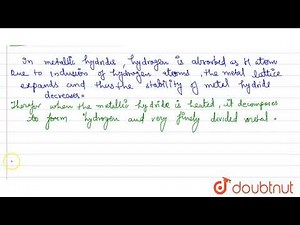 In metallic hydrides, hydrogen is absorbed as H atom
Due to Inclusion of hydrogen atoms, the metal lattice
expands and thus the stability of metal hydride
decreases.
Therefor when the metallic hydride is heated, it decomposes
to form hydrogen and very finely divided metal.
doubtnut